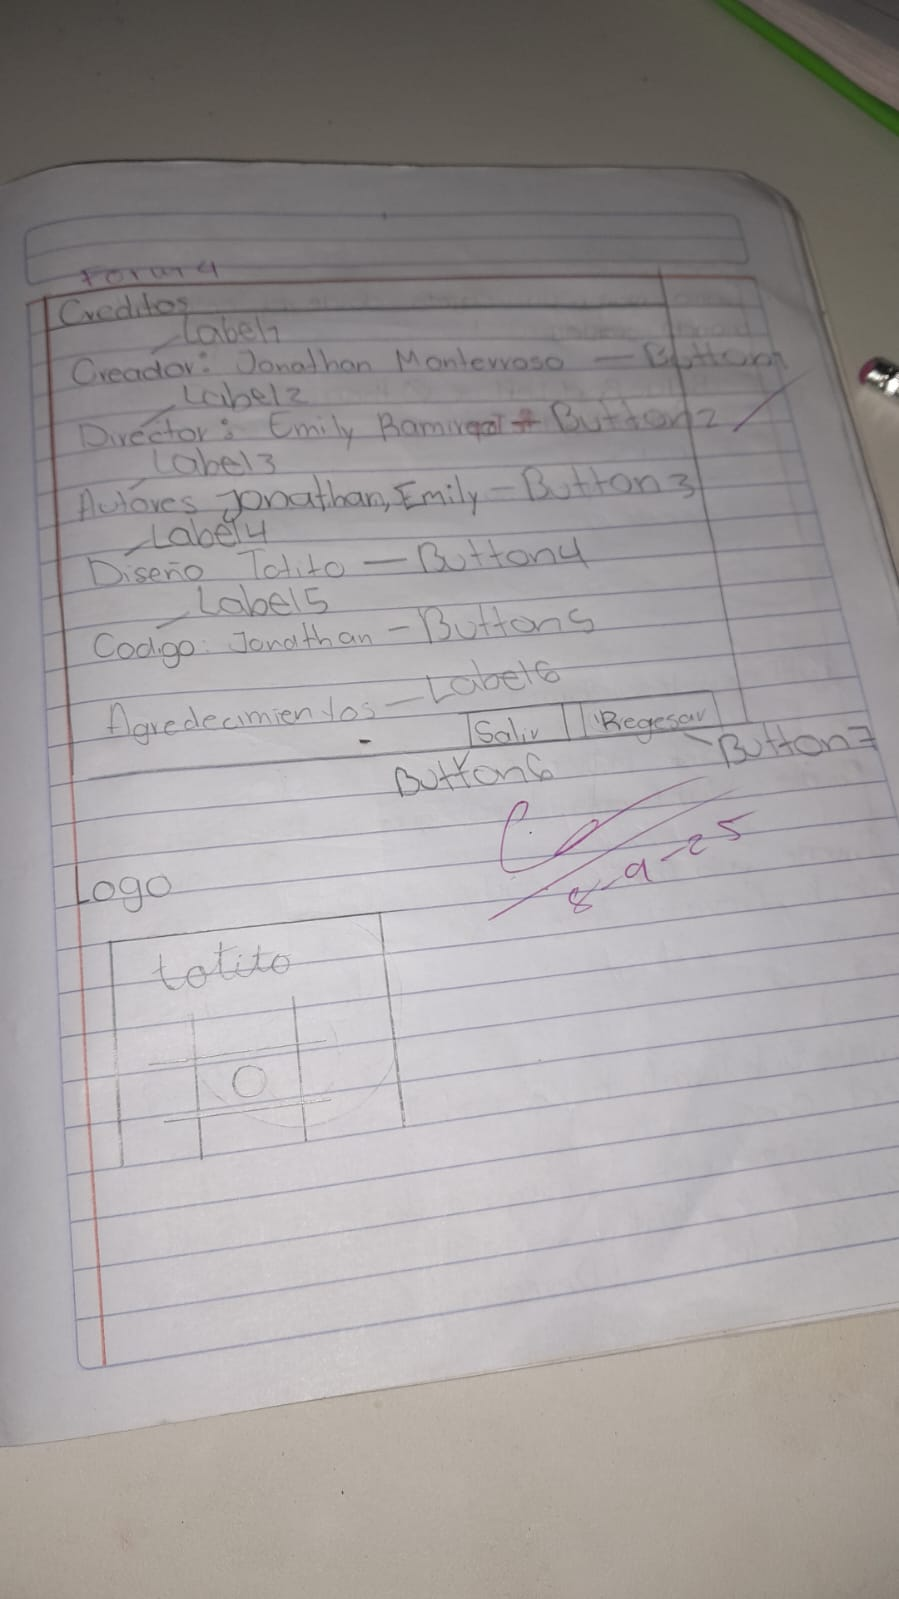 Form 4
Creditos
Label1
Creador: Jonathan Monterroso — Button1
Label2
Director: Emily Button2
Label3
Autores Jonathan, Emily — Button3
Label4
Diseño Totito — Button4
Label5
Codigo: Jonathan — Button5
Agredecimientos — Label6
Salir Regesar
Button6 Button7
8-9-25
Logo
totito
O